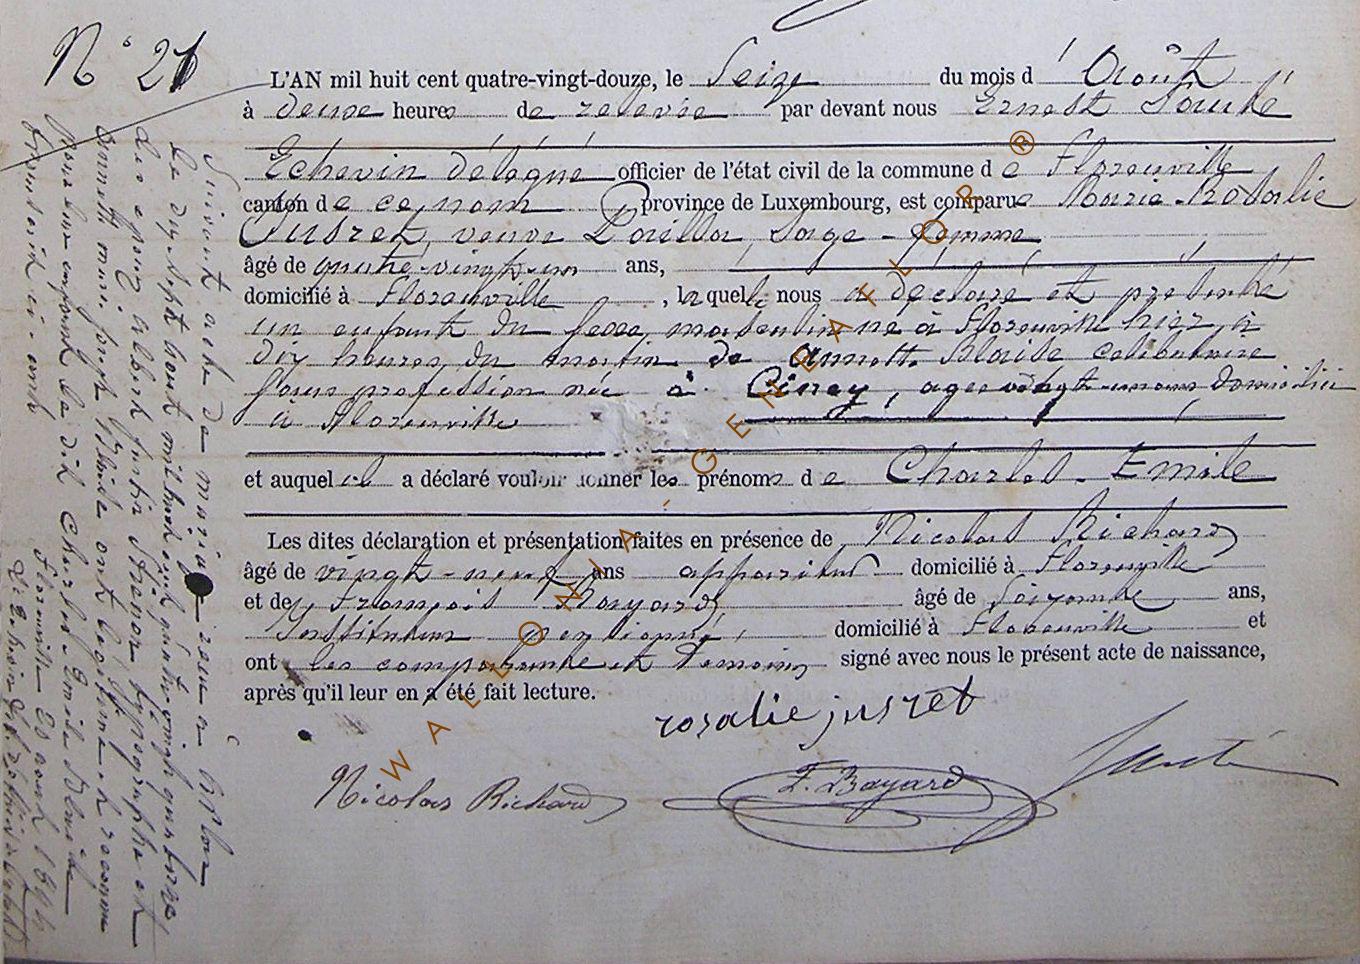 N° 21
L'AN mil huit cent quatre-vingt-douze, le Seize du mois d'Août
à deux heures de relevée par devant nous Ernest Santé
Echevin délégué officier de l'état civil de la commune de Florenville
canton de ce nom province de Luxembourg, est comparue Marie-Rosalie
Jusret, veuve Sage-femme
âgé de quatre-vingt-un ans,
domicilié à Florenville, laquelle nous a déclaré et présenté
un enfant du sexe masculin né à Florenville hier, à
dix heures du matin de Annette Blaise célibataire
sans profession née à Ciney, agée vingt-un ans domiciliée
à Florenville
et auquel il a déclaré vouloir donner les prénoms de Charles-Emile
Les dites déclaration et présentation faites en présence de Nicolas Richard
âgé de vingt-neuf ans appariteur domicilié à Florenville
et de François Bayard âgé de Soixante ans,
Instituteur pensionné, domicilié à Florenville et
ont les comparante et témoins signé avec nous le présent acte de naissance,
après qu'il leur en a été fait lecture.
rosalie jusret
Nicolas Richard
F. Bayard
Santé
Suivant acte de mariage reçu à
le dix-sept août mil huit cent quatre-vingt quatorze,
les époux Albert Justin typographe et
Annette marie joseph Blaise ont légitimé et reconnu
pour leur enfant le dit Charles-Emile Blaise
inscrit ci-contre
Florenville 28 août 1894
WALLONIA-GENEAFLOR®